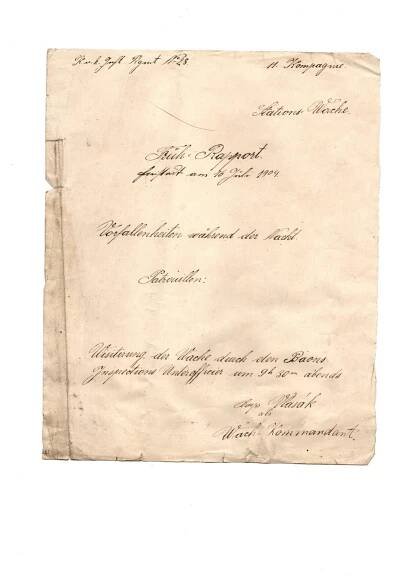 K. u. k. Inft. Rgmt No 28. 11. Kompagnie.
Stations-Wache.
Früh-Rapport.
am 16 Juli 1904.
Vorfallenheiten während der Nacht.
Patrouillen:
Visitierung der Wache durch den Baons
Inspections Unteroffizier um 9h 30m abends
Vlasák
als
Wach-Kommandant.